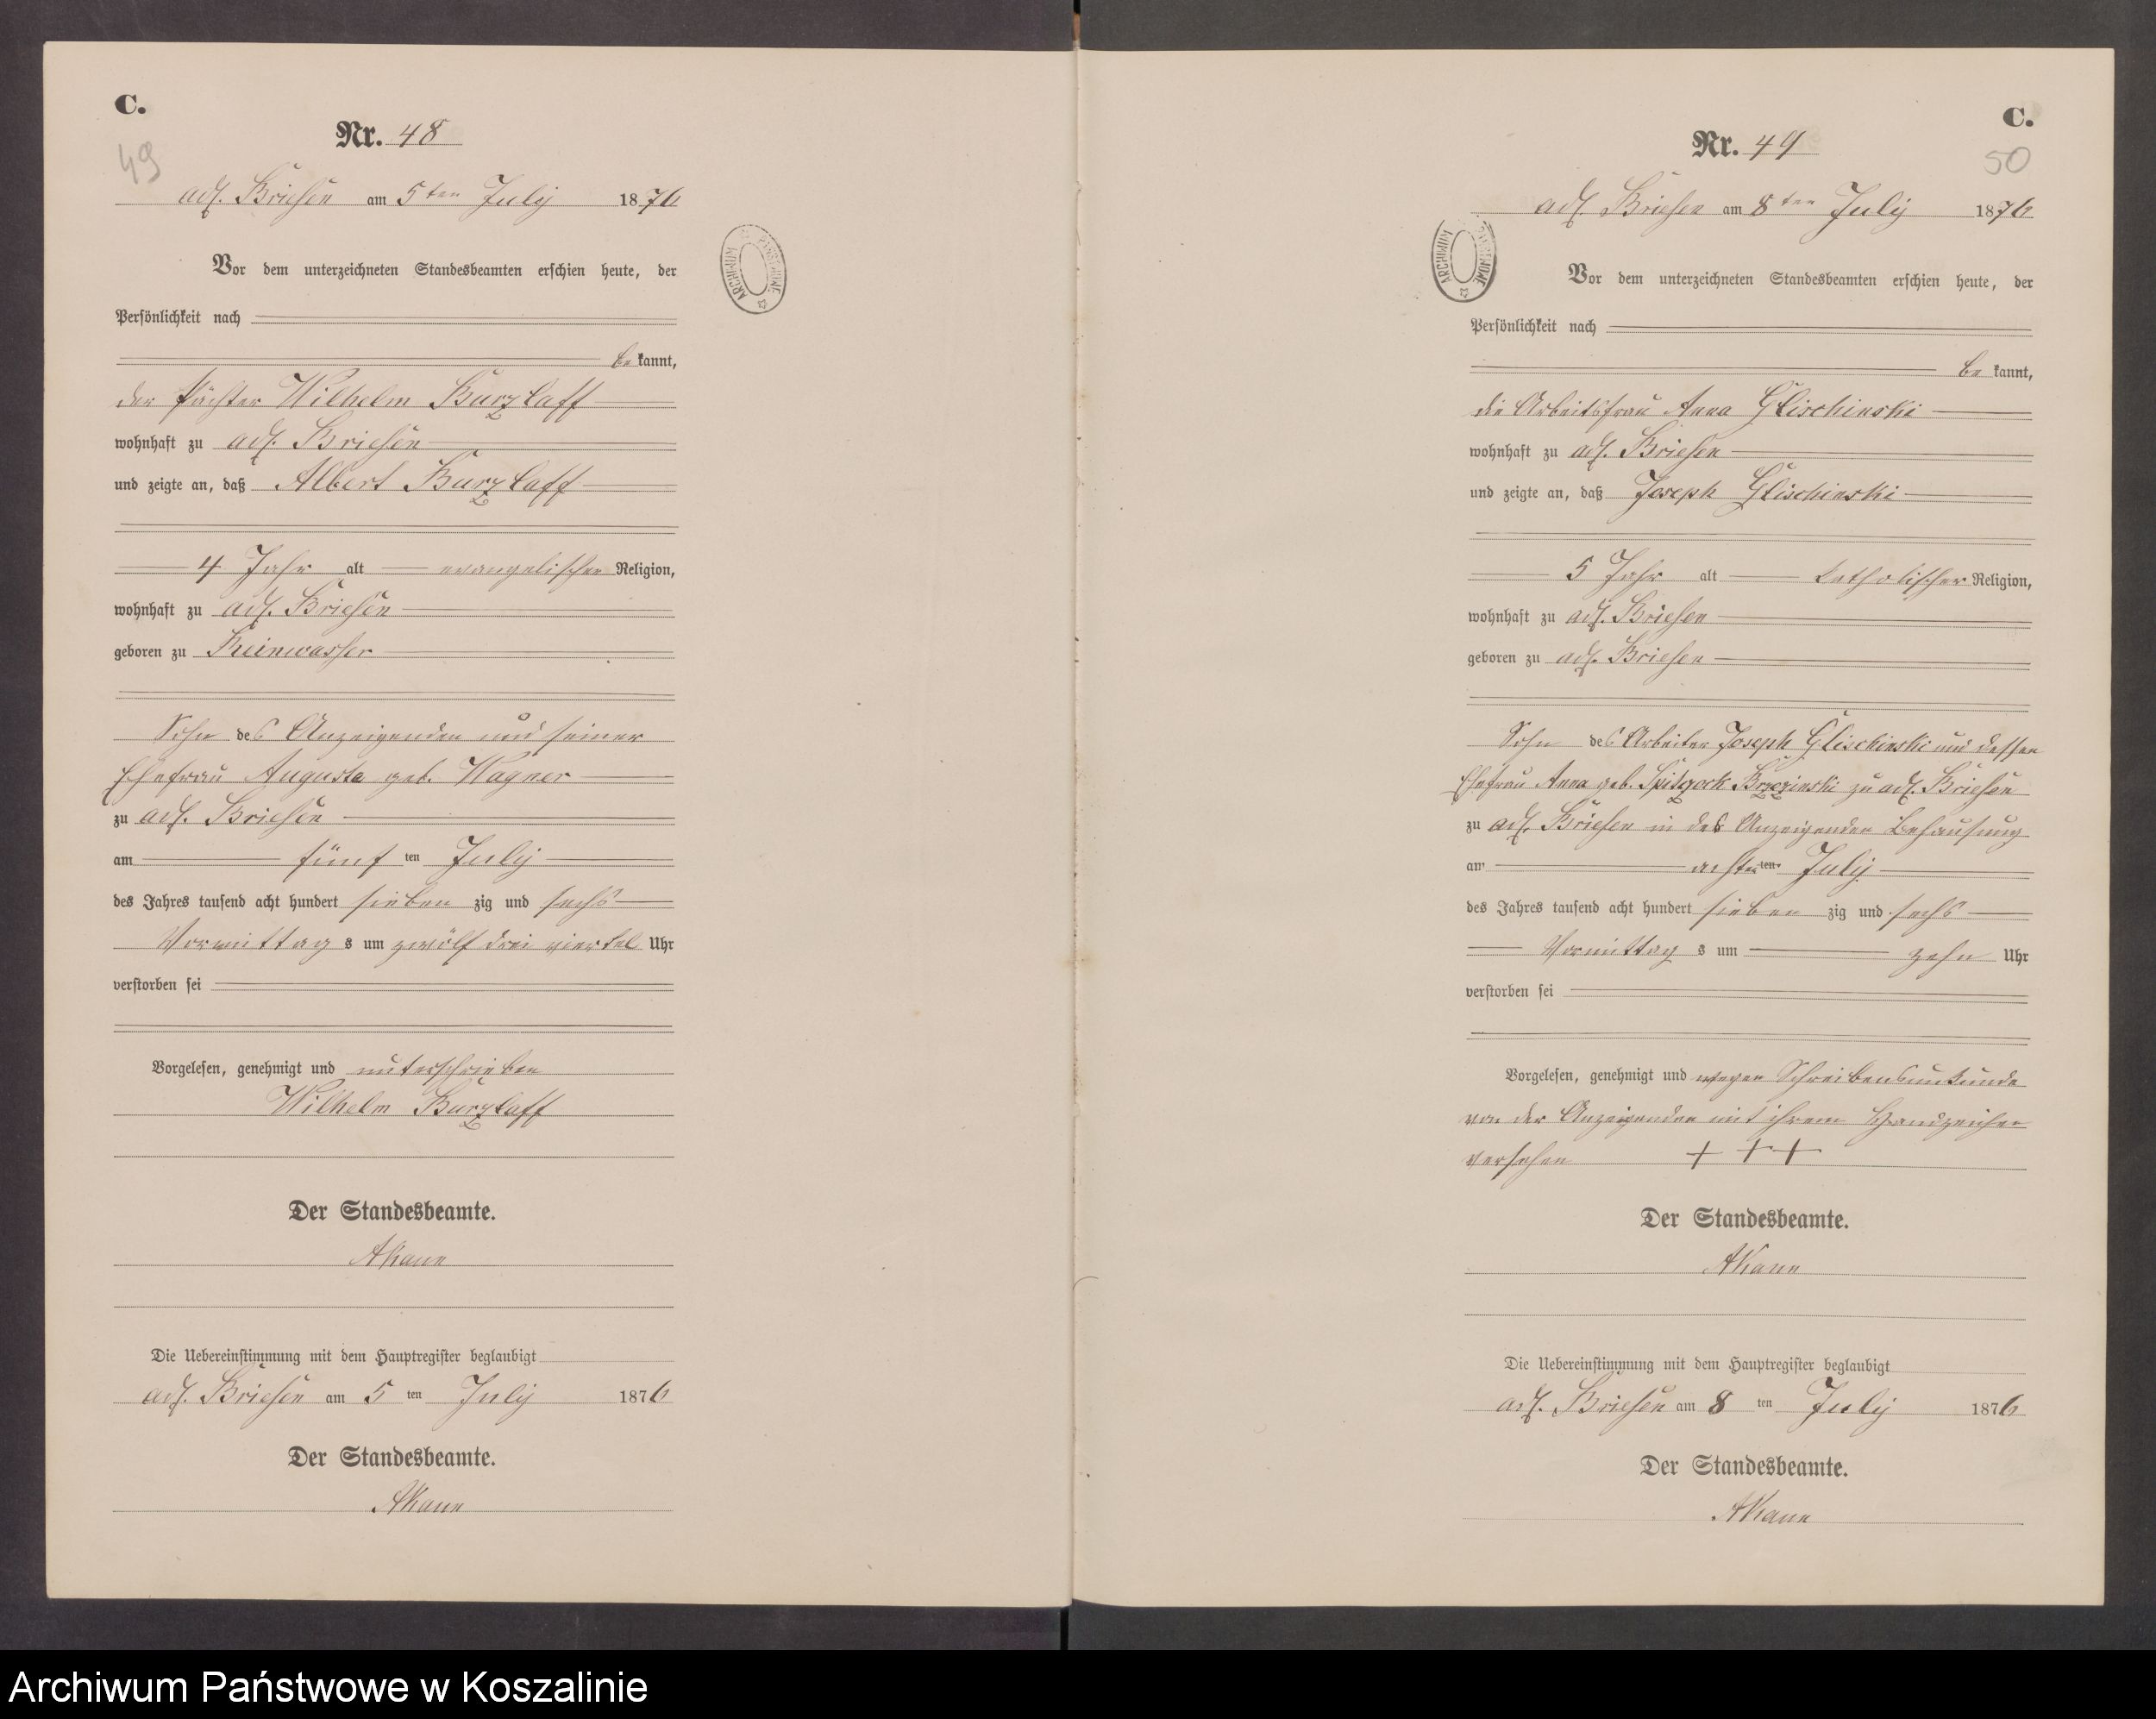 C.
49
Nr. 48
adl. Briesen am 5ten July 1876
ARCHIWUM PAŃSTWOWE
Vor dem unterzeichneten Standesbeamten erschien heute, der
Persönlichkeit nach
be kannt,
der Pächter Wilhelm Burzlaff
wohnhaft zu adl. Briesen
und zeigte an, daß Albert Burzlaff
4 Jahr alt evangelischer Religion,
wohnhaft zu adl. Briesen
geboren zu Reinwasser
Sohn des Anzeigenden und seiner
Ehefrau Augusta geb. Wagner
zu adl. Briesen
am fünf ten July
des Jahres tausend acht hundert sieben zig und sechs
Vormittag s um zwölf drei viertel Uhr
verstorben sei
Vorgelesen, genehmigt und unterschrieben
Wilhelm Burzlaff
Der Standesbeamte.
Die Uebereinstimmung mit dem Hauptregister beglaubigt
adl. Briesen am 5 ten July 1876
Der Standesbeamte.
C.
50
Nr. 49
adl. Briesen am 8ten July 1876
ARCHIWUM PAŃSTWOWE
Vor dem unterzeichneten Standesbeamten erschien heute, der
Persönlichkeit nach
be kannt,
die Arbeitsfrau Anna Glischinski
wohnhaft zu adl. Briesen
und zeigte an, daß Joseph Glischinski
5 Jahr alt katholischer Religion,
wohnhaft zu adl. Briesen
geboren zu adl. Briesen
Sohn des Arbeiter Joseph Glischinski und dessen
Ehefrau Anna geb. Brzezinski zu adl. Briesen
zu adl. Briesen in des Anzeigenden Behausung
am achten ten July
des Jahres tausend acht hundert sieben zig und sechs
Vormittag s um zehn Uhr
verstorben sei
Vorgelesen, genehmigt und wegen Schreibensunkunde
von der Anzeigenden mit ihrem Handzeichen
versehen + + +
Der Standesbeamte.
Die Uebereinstimmung mit dem Hauptregister beglaubigt
adl. Briesen am 8 ten July 1876
Der Standesbeamte.
Archiwum Państwowe w Koszalinie